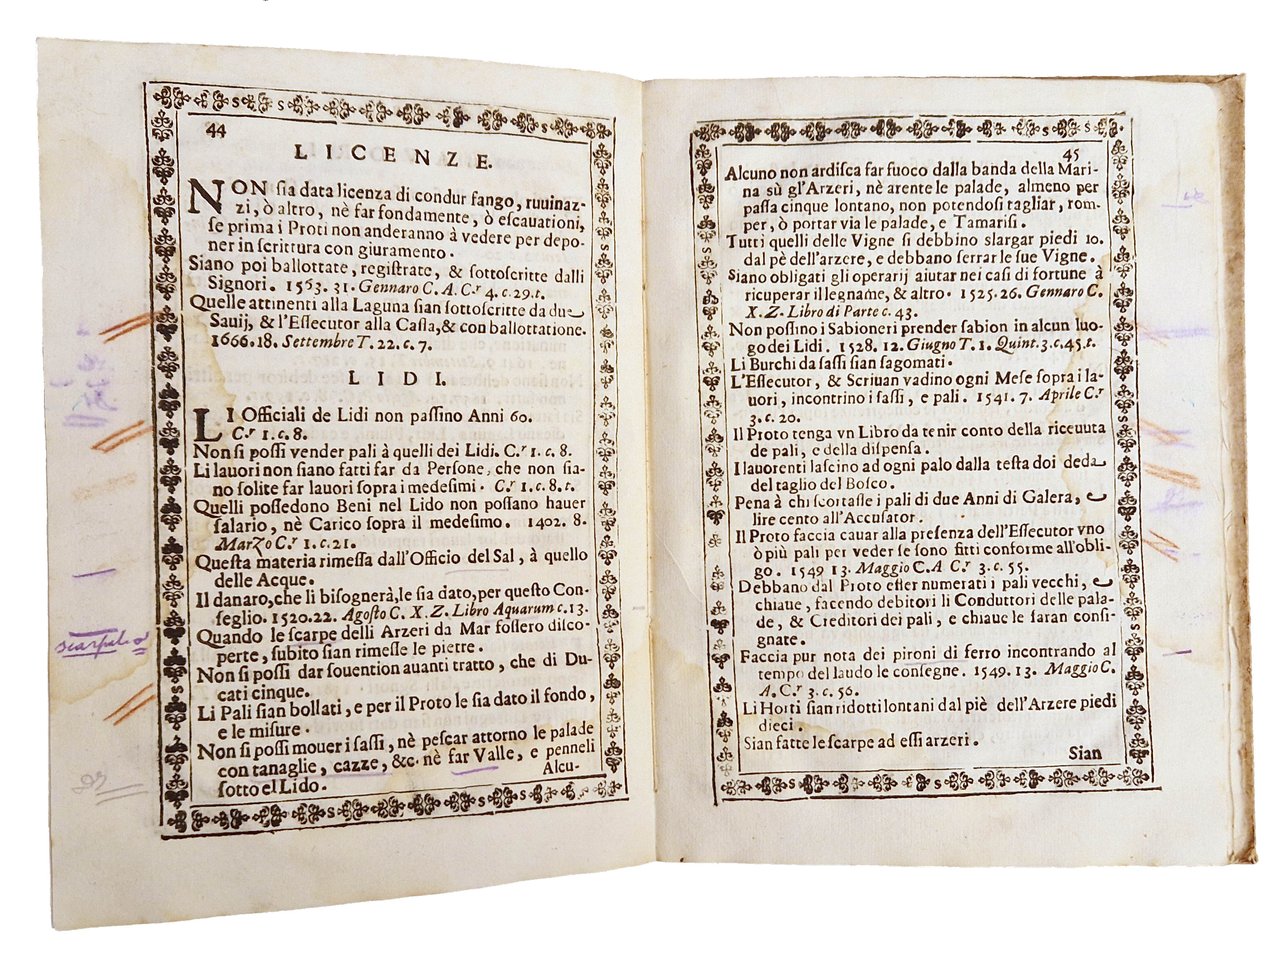 44
LICENZE.
NON ſia data licenza di condur fango, ruuinaz-
zi, ò altro, nè far fondamente, ò eſcauationi,
ſe prima i Proti non anderanno à vedere per depo-
ner in ſcrittura con giuramento.
Siano poi ballottate, regiſtrate, & ſottoſcritte dalli
Signori. 1563. 31. Gennaro C. A. C.r 4. c. 29. t.
Quelle attinenti alla Laguna ſian ſottoſcritte da due
Sauij, & l'Eſſecutor alla Caſſa, & con ballottatione.
1666. 18. Settembre T. 22. c. 7.
LIDI.
LI Officiali de Lidi non paſſino Anni 60.
C.r 1. c. 8.
Non ſi poſſi vender pali à quelli dei Lidi. C.r 1. c. 8.
Li lauori non ſiano fatti far da Perſone, che non ſia-
no ſolite far lauori ſopra i medeſimi. C.r 1. c. 8. t.
Quelli poſſedono Beni nel Lido non poſſano hauer
ſalario, nè Carico ſopra il medeſimo. 1402. 8.
Marzo C.r 1. c. 21.
Queſta materia rimeſſa dall'Officio del Sal, à quello
delle Acque.
Il danaro, che li biſognerà, le ſia dato, per queſto Con-
ſeglio. 1520. 22. Agoſto C. X. Z. Libro Aquarum c. 13.
Quando le ſcarpe delli Arzeri da Mar foſſero diſco-
perte, ſubito ſian rimeſſe le pietre.
Non ſi poſſi dar ſouention auanti tratto, che di Du-
cati cinque.
Li Pali ſian bollati, e per il Proto le ſia dato il fondo,
e le miſure.
Non ſi poſſi mouer i ſaſſi, nè peſcar attorno le palade
con tanaglie, cazze, &c. nè far Valle, e penneli
ſotto el Lido.
Alcu-
scarpado
45
Alcuno non ardiſca far fuoco dalla banda della Mari-
na sù gl'Arzeri, nè arente le palade, almeno per
paſſa cinque lontano, non potendoſi tagliar, rom-
per, ò portar via le palade, e Tamariſi.
Tutti quelli delle Vigne ſi debbino slargar piedi 10.
dal pè dell'arzere, e debbano ſerrar le ſue Vigne.
Siano obligati gli operarij aiutar nei caſi di fortune à
ricuperar il legname, & altro. 1525. 26. Gennaro C.
X. Z. Libro di Parte c. 43.
Non poſſino i Sabioneri prender ſabion in alcun luo-
go dei Lidi. 1528. 12. Giugno T. 1. Quint. 3. c. 45. t.
Li Burchi da ſaſſi ſian ſagomati.
L'Eſſecutor, & Scriuan vadino ogni Meſe ſopra i la-
uori, incontrino i ſaſſi, e pali. 1541. 7. Aprile C.r
3. c. 20.
Il Proto tenga vn Libro da tenir conto della riceuuta
de pali, e della diſpenſa.
I lauorenti laſcino ad ogni palo dalla teſta doi deda
del taglio del Boſco.
Pena à chi ſcortaſſe i pali di due Anni di Galera, e
lire cento all'Accuſator.
Il Proto faccia cauar alla preſenza dell'Eſſecutor vno
ò più pali per veder ſe ſono fitti conforme all'obli-
go. 1549 13. Maggio C. A C.r 3. c. 55.
Debbano dal Proto eſſer numerati i pali vecchi, e
chiaue, facendo debitori li Conduttori delle pala-
de, & Creditori dei pali, e chiaue le ſaran conſi-
gnate.
Faccia pur nota dei pironi di ferro incontrando al
tempo del laudo le conſegne. 1549. 13. Maggio C.
A. C.r 3. c. 56.
Li Horti ſian ridotti lontani dal piè dell'Arzere piedi
dieci.
Sian fatte le ſcarpe ad eſſi arzeri.
Sian